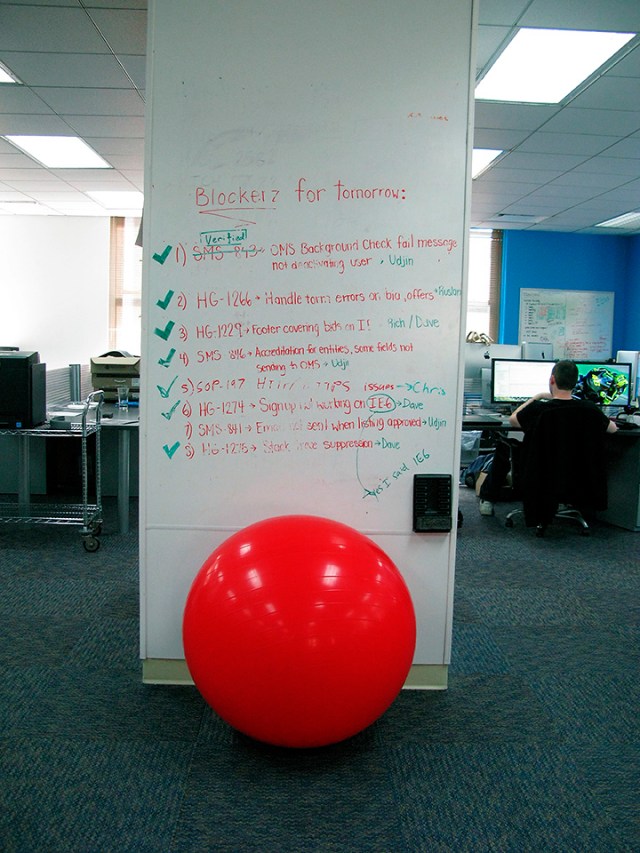 Blockerz for tomorrow:
Verified
1) SMS-843 → OMS Background Check fail message
not deactivating user → Udjin
2) HG-1266 → Handle term errors on bid, offers → Ruslan
3) HG-1229 → Footer covering bids on I! → Rich / Dave
4) SMS 846 → Accreditation for entities, some fields not
sending to OMS → Udji
5) SOP-187 issues → Chris
6) HG-1274 → Sign up not working on IE6 → Dave
7) SMS-841 → Email not sent when listing approved → Udjin
8) HG-1275 → Stack suppression → Dave
yes I said IE6